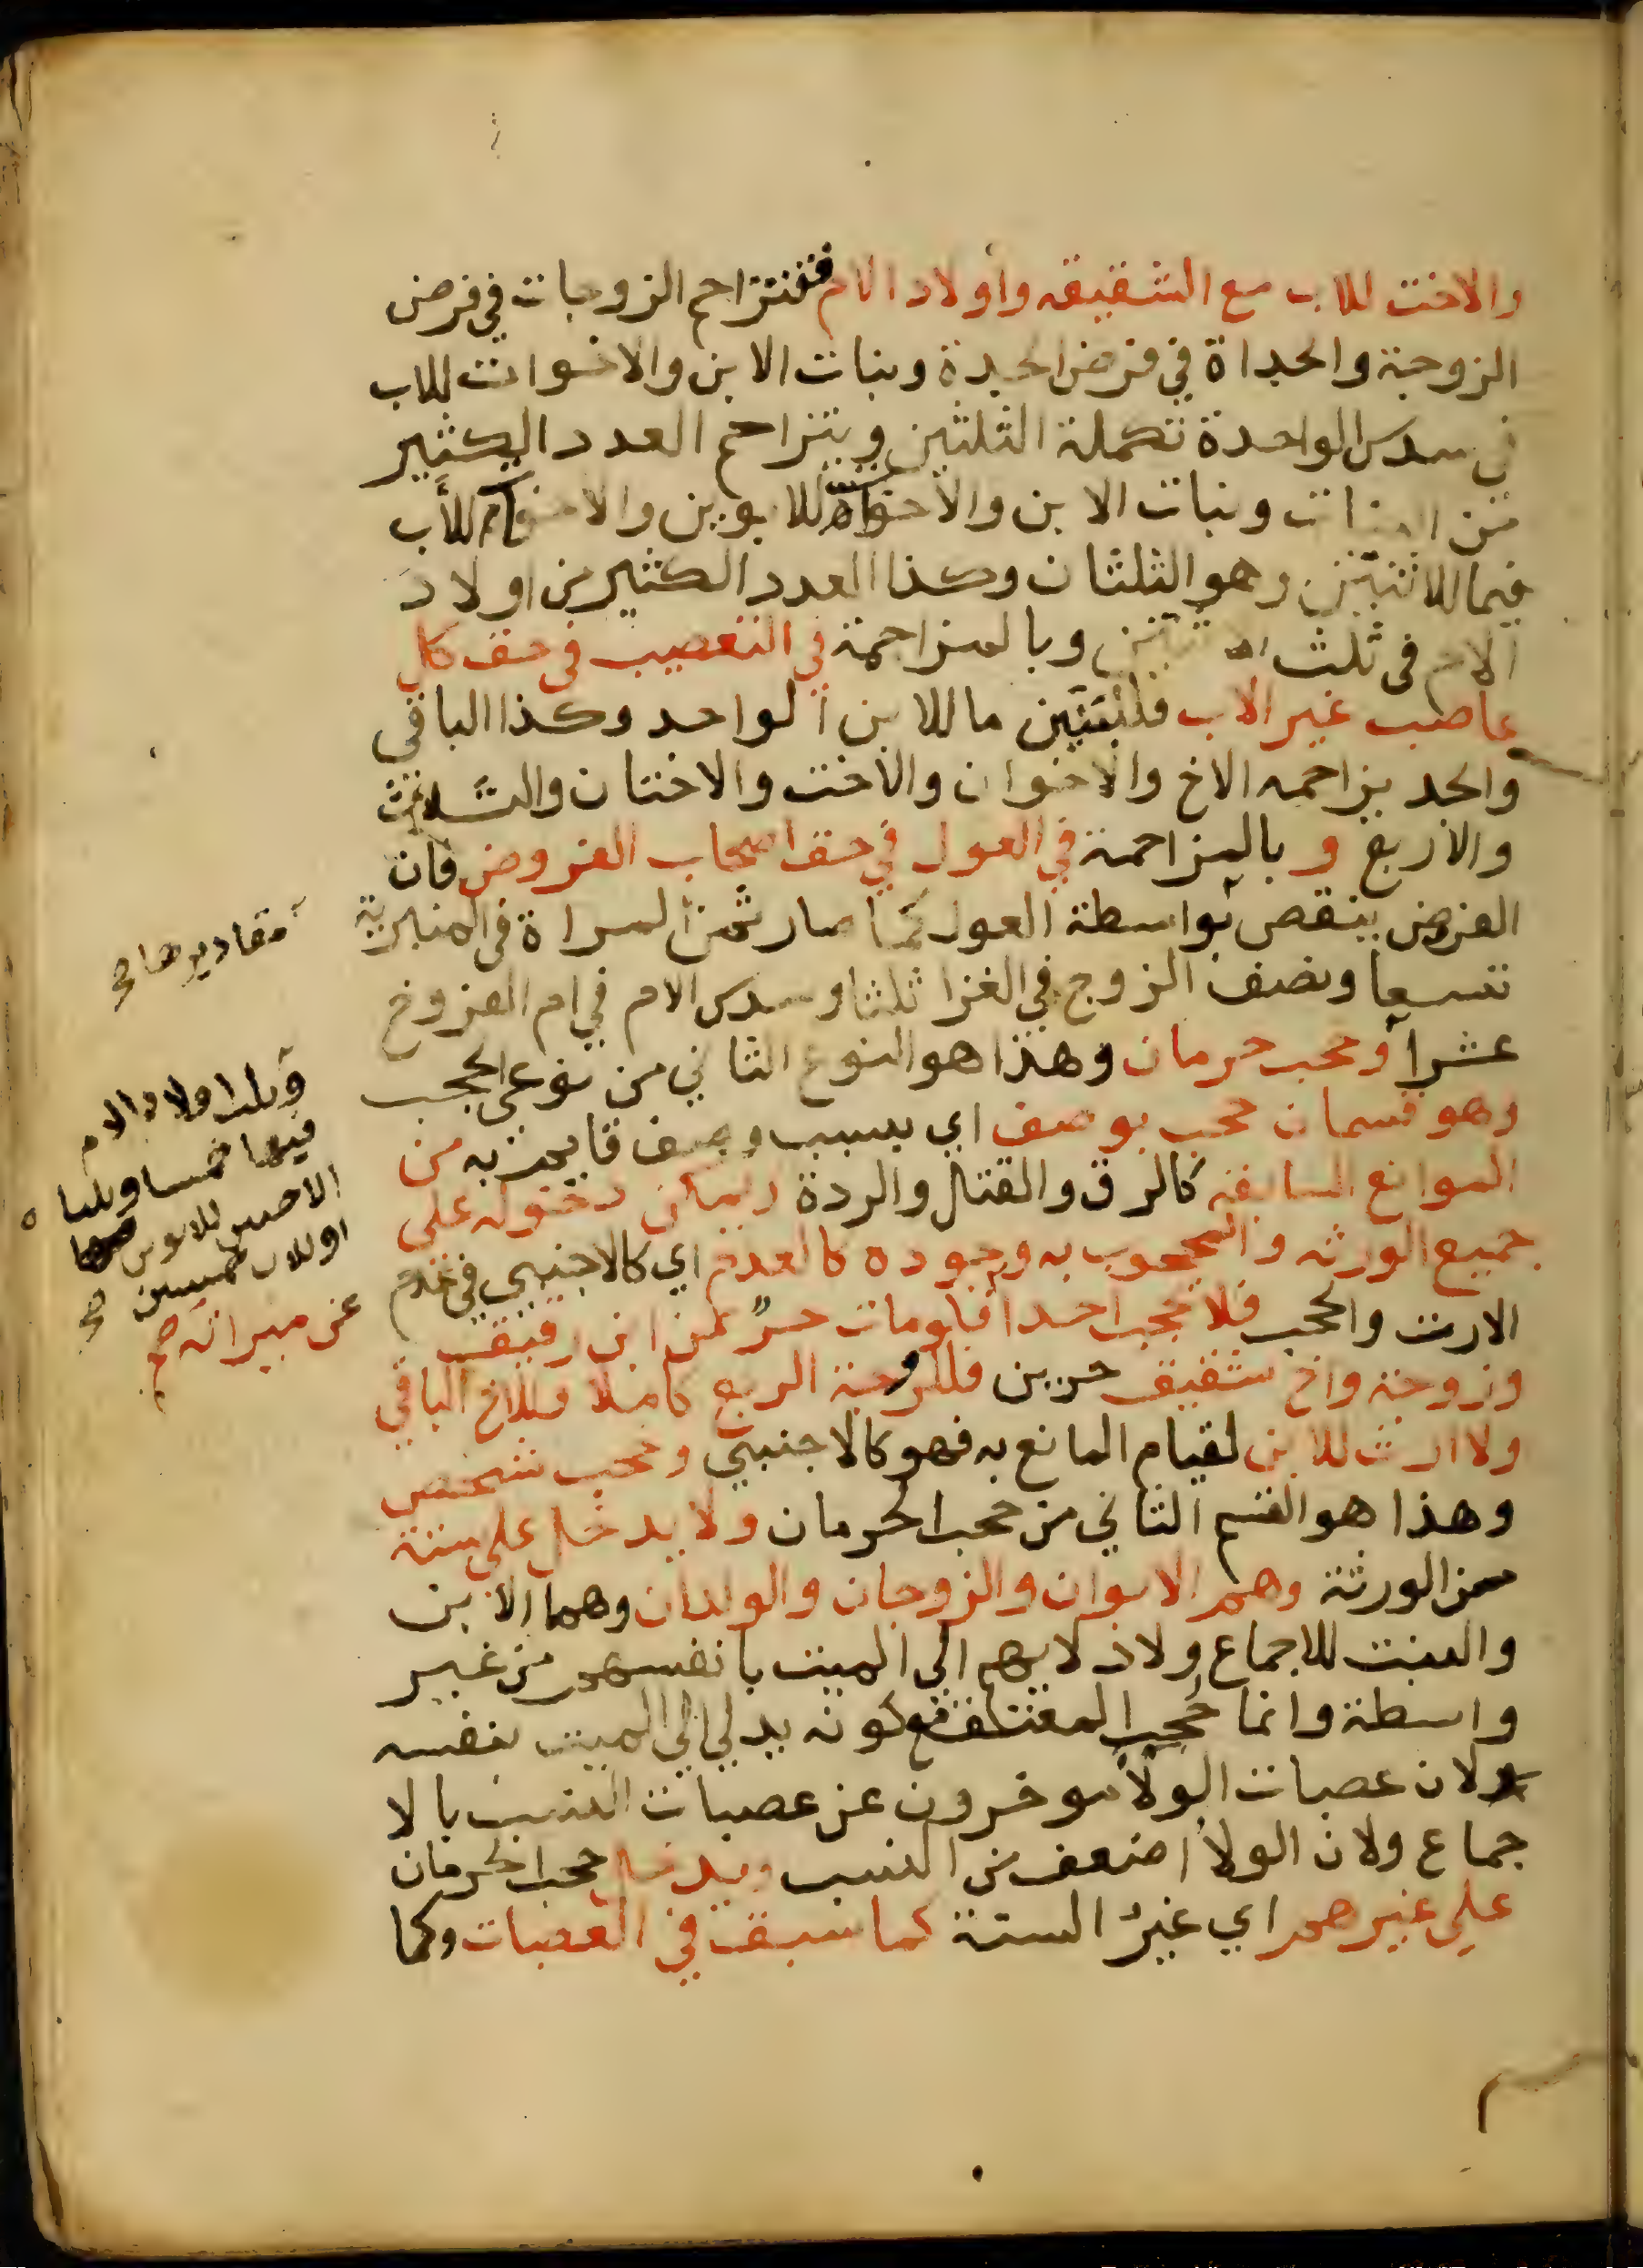 والاخت للاب مع الشقيقه واولاد الام فتتزاحم الزوجات في فرض
الزوجة والجداة في فرض الجدة وبنات الابن والاخوات للاب
في سدس الواحدة تكملة الثلثين ويتزاحم العدد الكثير
من البنات وبنات الابن والاخوات للابوين والاخوات للأب
فيما للاثنتين وهو الثلثان وكذا العدد الكثير من اولاد
الام في ثلث الاثنين وبالمزاحمة في التعصيب في حق كل
عاصب غير الاب فلبنين ما للابن الواحد وكذا الباقي
والجد يزاحمه الاخ والاخوان والاخت والاختان والثلاث
والاربع وبالمزاحمة في العول في حق اصحاب الفروض فان
الفرض ينقص بواسطة العول كما صار ثمن المراة في المنبرية
تسعا ونصف الزوج في الغرا ثلثا وسدس الام في ام الفروخ
عشرا وحجب حرمان وهذا هو النوع الثاني من نوعي الحجب
وهو قسمان حجب بوصف اي بسبب وصف قايم به من
الموانع السابقه كالرق والقتل والردة ويمكن دخوله على
جميع الورثه والمحجوب به وجوده كالعدم اي كالاجنبي في عدم
الارث والحجب فلا يحجب احدا فلومات حر عن ابن رقيق
وزوجة واخ شقيق حرين فللزوجة الربع كاملا وللاخ الباقي
ولا ارث للابن لقيام المانع به فهو كالاجنبي وحجب شخص
وهذا هو القسم الثاني من حجب الحرمان ولا يدخل على ستة
من الورثة وهم الابوان والزوجان والولدان وهما الابن
والبنت للاجماع ولادلايهم الى الميت بانفسهم من غير
واسطة وانما حجب المعتق مع كونه يدلي الي الميت بنفسه
لان عصبات الولا موخرون عن عصبات النسب بالا
جماع ولان الولا اضعف من النسب ويدخل حجب الحرمان
علي غيرهم اي غير الستة كما سبق في العصبات وكما
مقاديرها صح
وثلث اولاد الام
فيها خمسا وثلثا
الاختين للابوين
او للاب خمسين صح
عن ميراثه صح